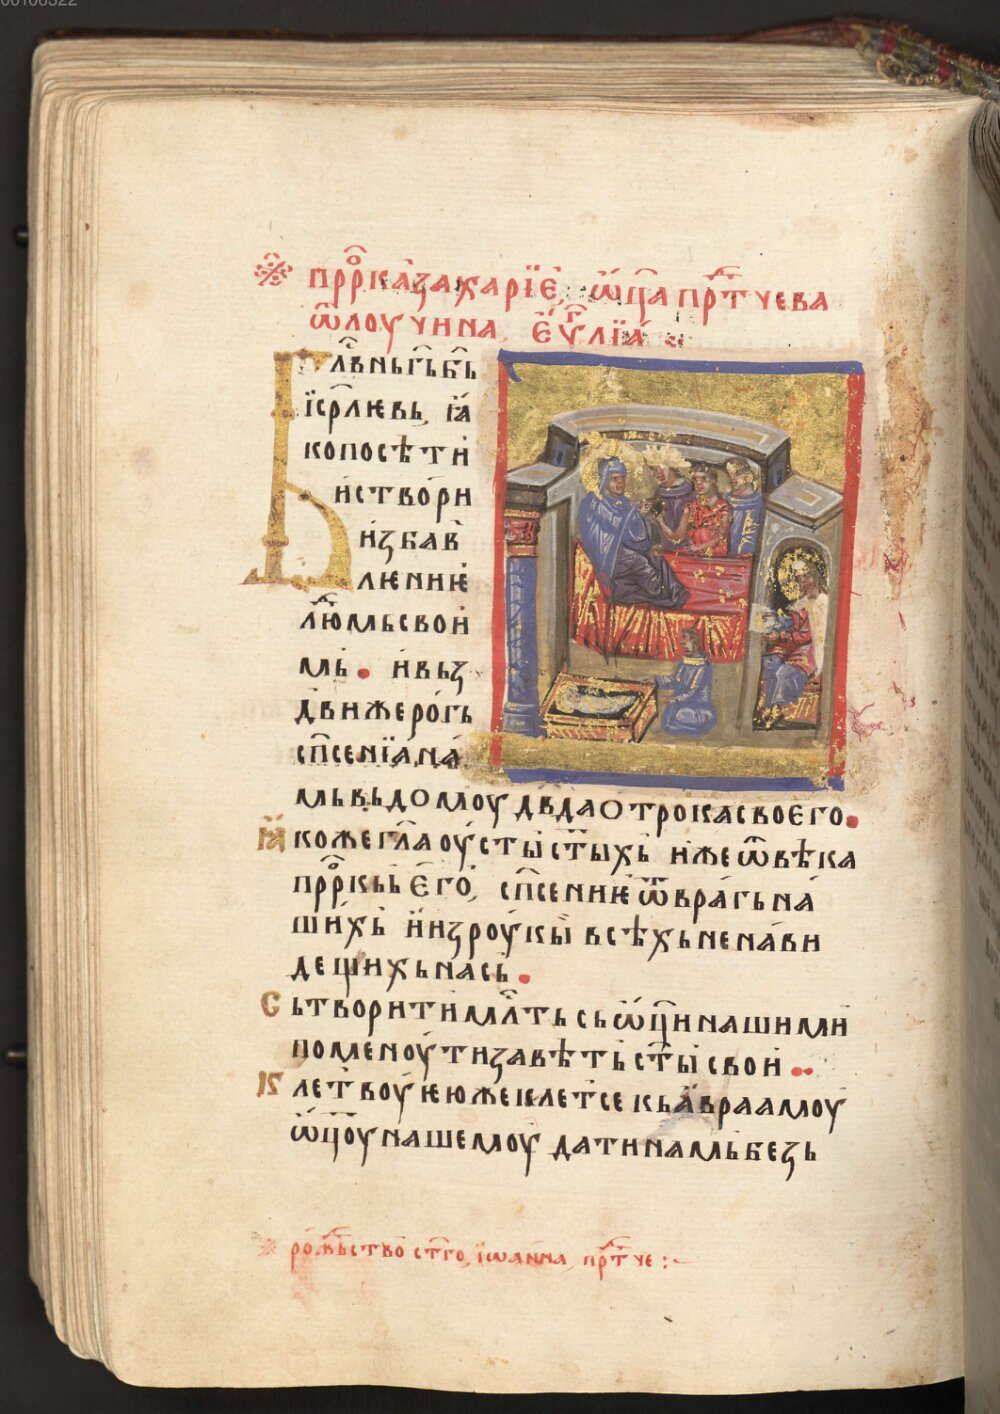 00106322
прр҇ка̀ захарїѐ, ѿц҃а прт҇чева
ѿ лоу чнна, еѵ҇лїа
Бл҇вньгь б҃ь
їс҃рлювь, ꙗ
ко посѣти
и створи
избав
лѥниѥ
лю҇мь свои
мь. и вьз
движе рогь
сп҃сенїа на
мь вь домоу дв҃да отрока своего.
ꙗкоже гл҃а оусты ст҃ыхь иже ѿ вѣка
прр҇кьь его, сп҃сениѥ ѿ врагь на
шихь и из роукы всѣхь ненави
дещихь нась.
Сьтворити мл҇ть сь ѿц҃и нашими
поменоути завѣть ст҃ы свои ..
Клетвоу ѥюже клет се кь авраамоу
ѿц҃оу нашемоу дати намь безь
рож҇ьство ст҃го, їѡанна, прт҇че :~